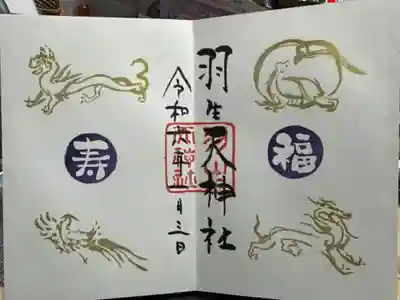 福
羽生天神社
令和六年 月三日
寿